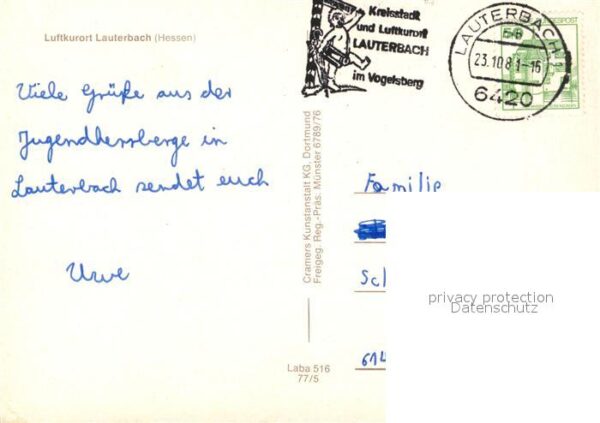 Luftkurort Lauterbach (Hessen)
Viele Grüße aus der
Jugendherberge in
Lauterbach sendet euch
Uwe
Cramers Kunstanstalt KG, Dortmund
Freigeg. Reg.-Präs. Münster 6789/76
Laba 516
77/5
Kreisstadt
und Luftkurort
LAUTERBACH
im Vogelsberg
LAUTERBACH
23.10.81-16
6420
Familie
Sch
614
privacy protection
Datenschutz